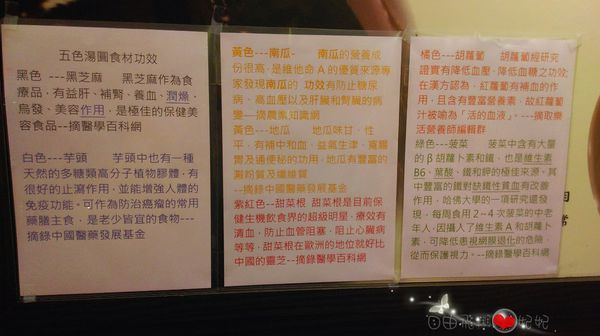 五色湯圓食材功效
黑色 ---黑芝麻　黑芝麻作為食
療品，有益肝、補腎、養血、潤燥、
烏發、美容作用，是極佳的保健美
容食品--摘醫學百科網
白色---芋頭　芋頭中也有一種
天然的多糖類高分子植物膠體，有
很好的止瀉作用，並能增強人體的
免疫功能。可作為防治癌瘤的常用
藥膳主食，是老少皆宜的食物---
摘錄中國醫藥發展基金
黃色---南瓜-　南瓜的營養成
份很高，是維他命 A 的優質來源專
家發現南瓜的 功效有防止糖尿
病、高血壓以及肝臟和腎臟的病
變—摘農業知識網
黃色---地瓜　地瓜味甘，性
平，有補中和血、益氣生津、寬腸
胃及通便秘的功用，地瓜有豐富的
澱粉質及纖維質
--摘錄中國醫藥發展基金
紫紅色---甜菜根 甜菜根是目前保
健生機飲食界的超級明星，療效有
清血，防止血管阻塞，阻止心臟病
等等，甜菜根在歐洲的地位就好比
中國的靈芝--摘錄醫學百科網
橘色---胡蘿蔔　胡蘿蔔經研究
證實有降低血壓、降低血糖之功效;
在漢方認為，紅蘿蔔有補血的作
用，且含有豐富營養素，故紅蘿蔔
汁被喻為「活的血液」。---摘取樂
活營養師編輯群
綠色---菠菜　菠菜中含有大量
的 β 胡蘿卜素和鐵，也是維生素
B6、葉酸、鐵和鉀的極佳來源。其
中豐富的鐵對缺鐵性貧血有改善
作用，哈佛大學的一項研究還發
現，每周食用 2~4 次菠菜的中老
年人，因攝入了維生素 A 和胡蘿卜
素，可降低患視網膜退化的危險，
從而保護視力。--摘錄醫學百科網
自由飛翔 妃妃